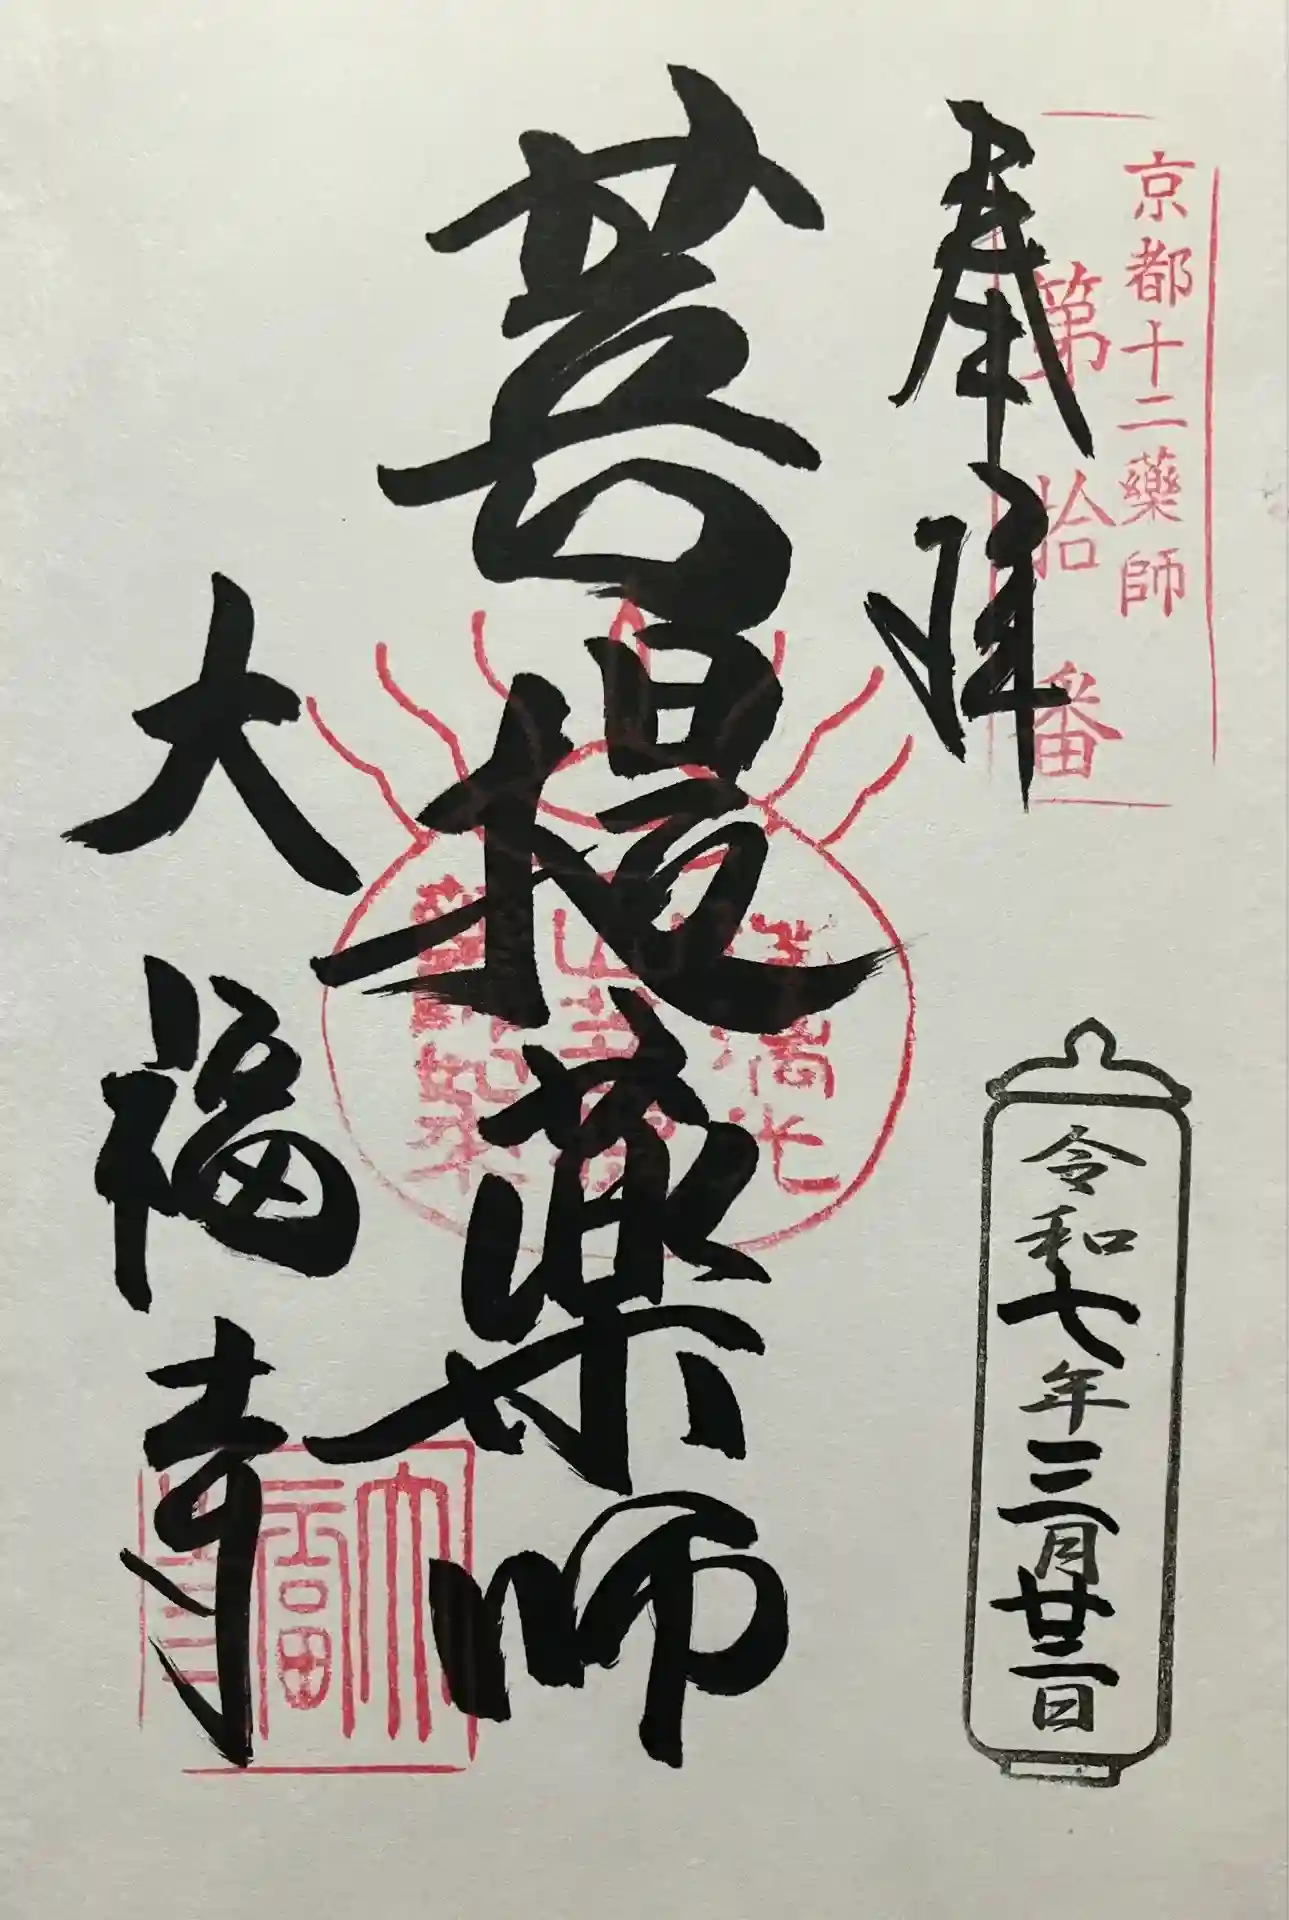 京都十二藥師
第拾番
奉拝
令和七年三月廿二日
菩提薬師
大福寺